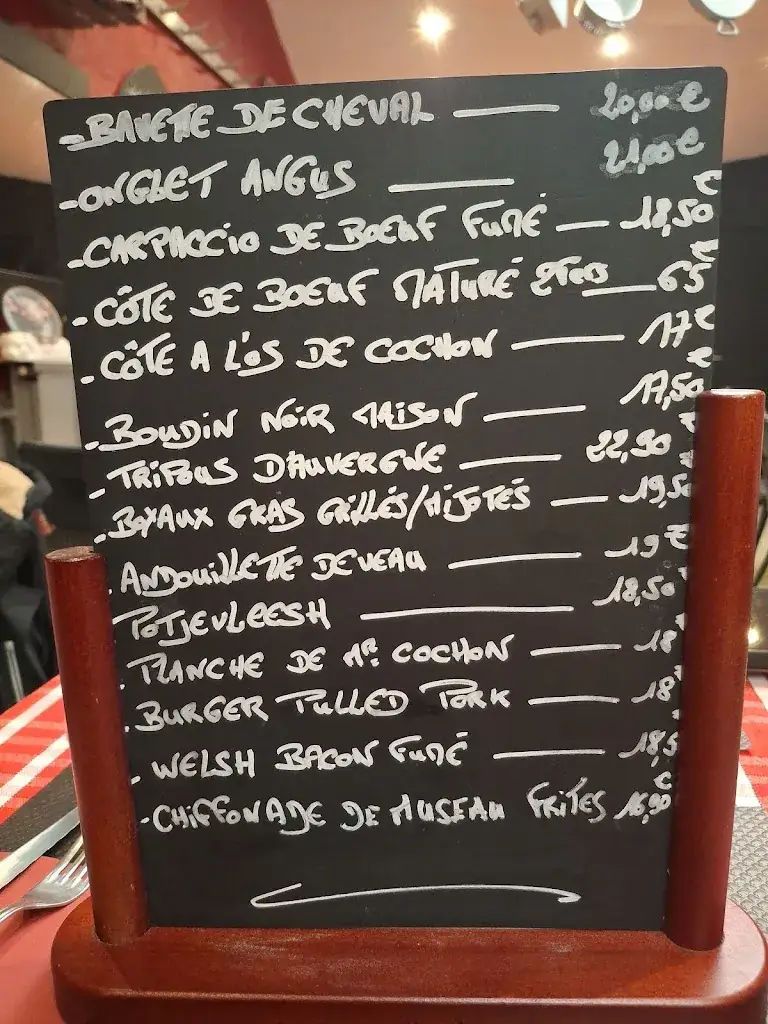 -BAVETTE DE CHEVAL — 20,00€
-ONGLET ANGUS — 21,00€
-CARPACCIO DE BOEUF FUMÉ — 18,50€
-CÔTE DE BOEUF MATURÉ 2PERS — 65€
-CÔTE A L'OS DE COCHON — 17€
-BOUDIN NOIR MAISON — 17,50€
-TRIPOUS D'AUVERGNE — 22,90€
-BOYAUX GRAS GRILLÉS/MIJOTÉS — 19,50
-ANDOUILLETTE DE VEAU — 19€
-POTJEVLEESH — 18,50
-PLANCHE DE MR. COCHON — 18
-BURGER PULLED PORK — 18
-WELSH BACON FUMÉ — 18,5
-CHIFFONADE DE MUSEAU FRITES 16,90€